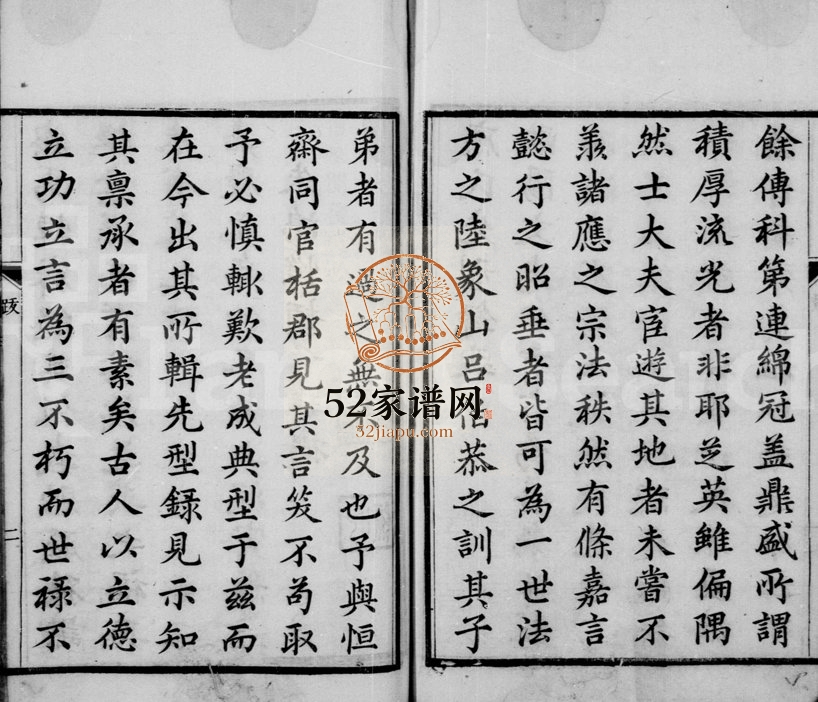 餘傳科第連綿冠盖鼎盛所謂
積厚流光者非耶芝英雖偏隅
然士大夫宦遊其地者未嘗不
羨諸應之宗法秩然有條嘉言
懿行之昭垂者皆可為一世法
方之陸象山呂恭之訓其子
弟者有過之無不及也予與恒
齋同官栝郡見其言笑不苟取
予必慎輙歎老成典型于兹而
在今出其所輯先型録見示知
其禀承者有素矣古人以立德
立功立言為三不朽而世禄不
跋
二
52家谱网
52jiapu.com